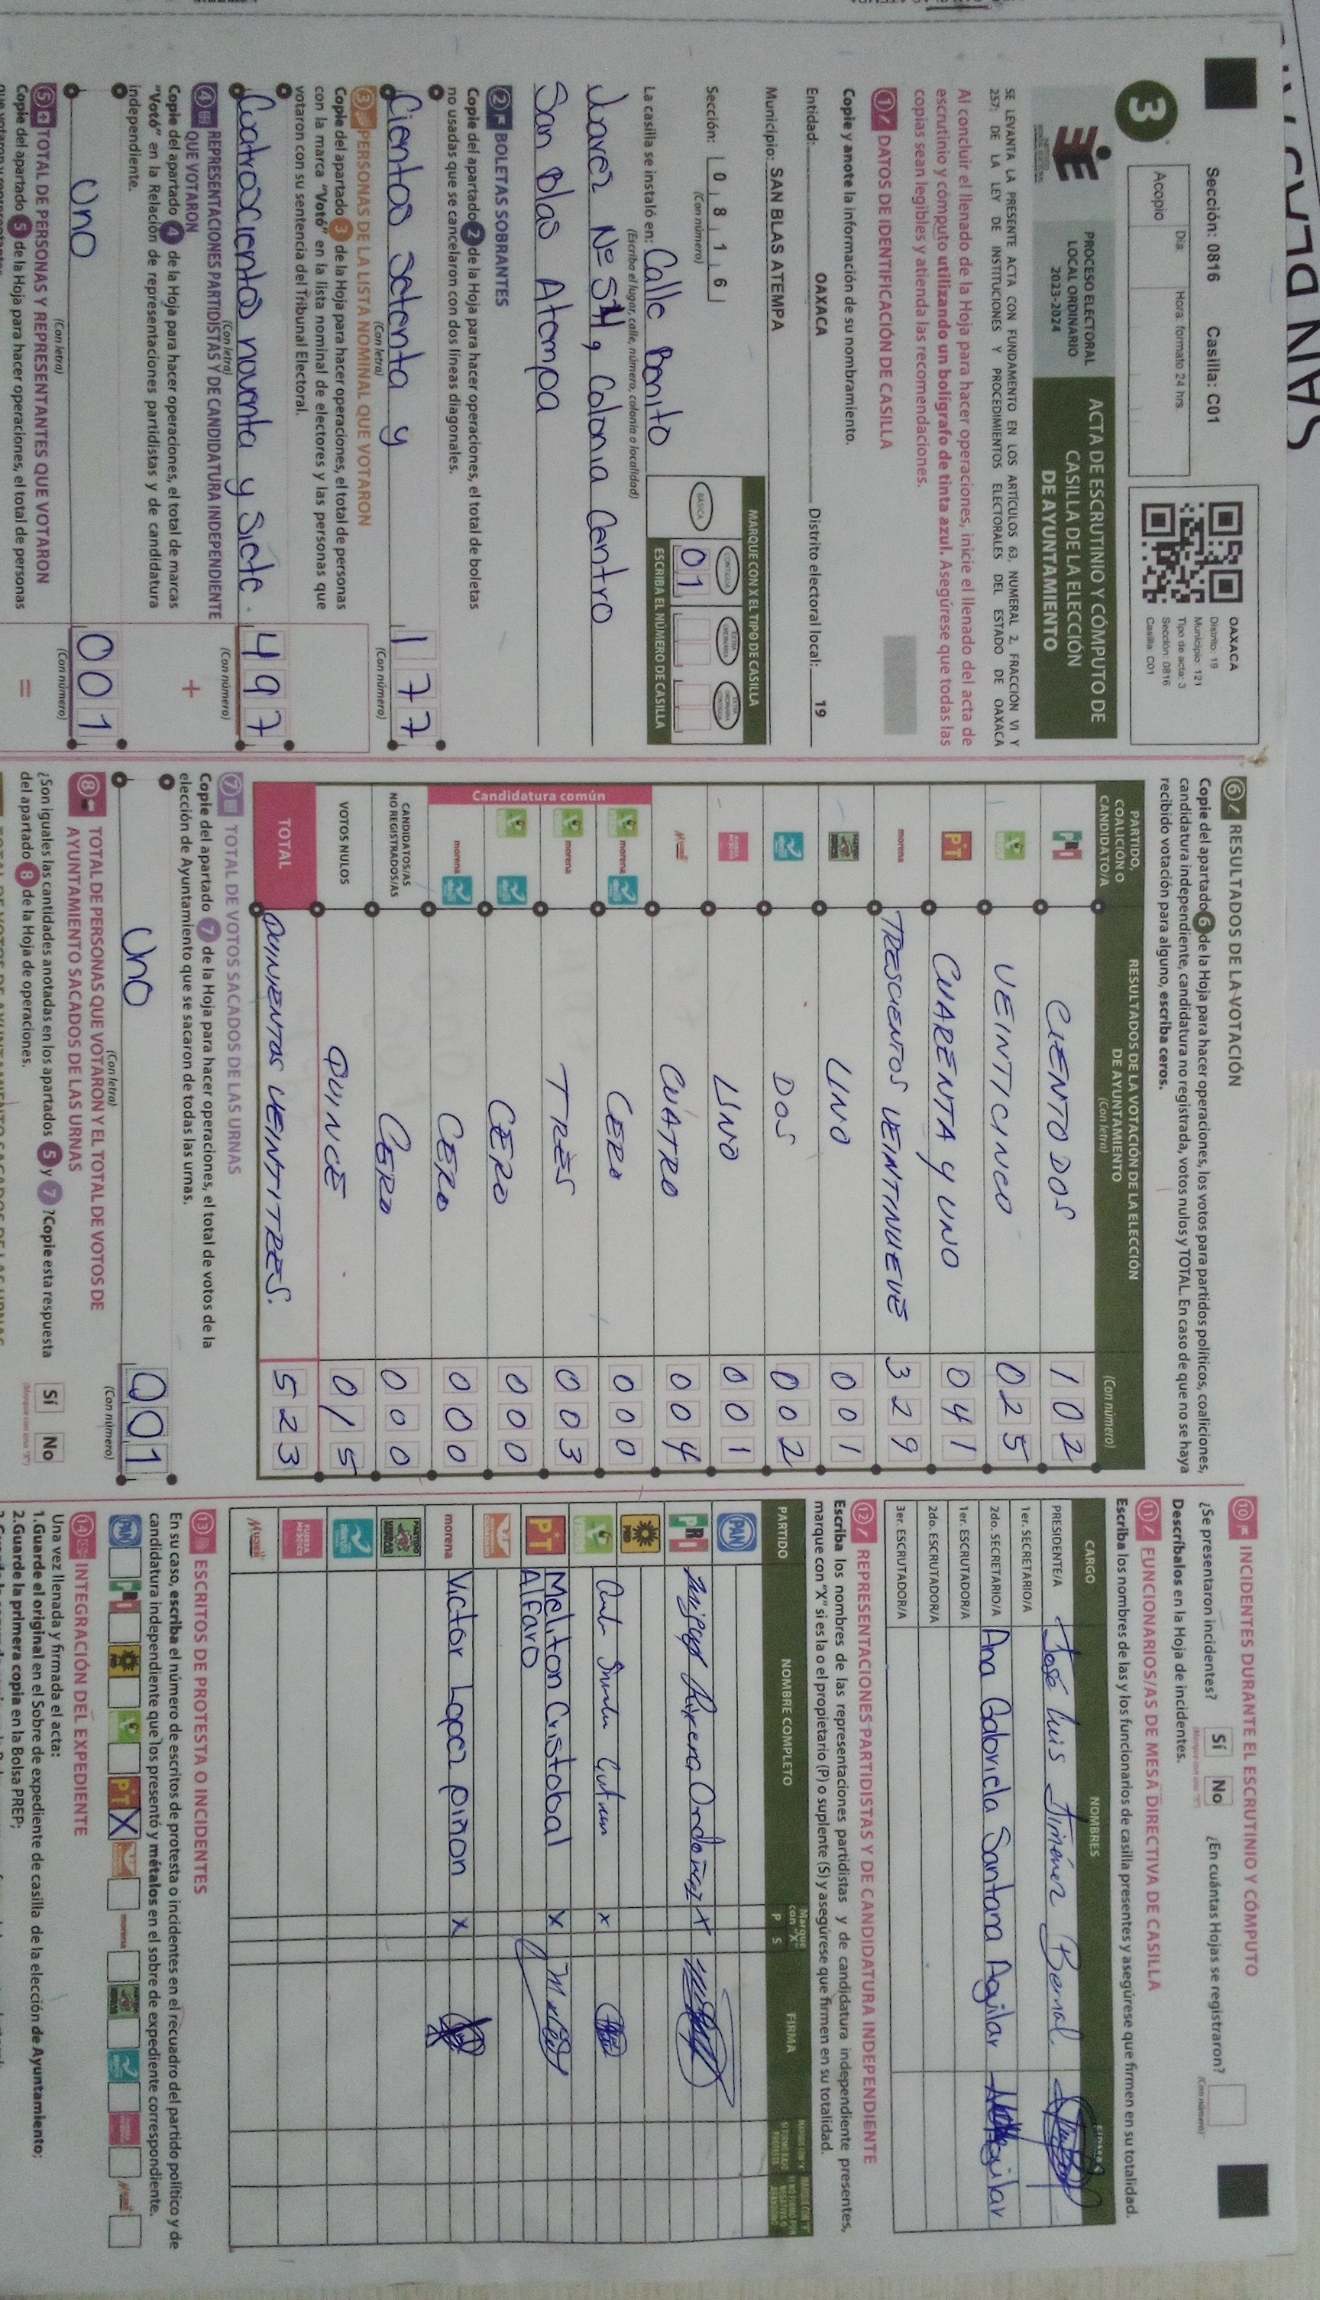 SAN BLAS
Sección: 0816 Casilla: C01
3
Día: Hora: formato 24 hrs.
Acopio
OAXACA
Distrito: 19
Municipio: 121
Tipo de acta: 3
Sección: 0816
Casilla: C01
PROCESO ELECTORAL
LOCAL ORDINARIO
2023-2024
ACTA DE ESCRUTINIO Y CÓMPUTO DE
CASILLA DE LA ELECCIÓN
DE AYUNTAMIENTO
SE LEVANTA LA PRESENTE ACTA CON FUNDAMENTO EN LOS ARTÍCULOS 63, NUMERAL 2, FRACCIÓN VI Y
257; DE LA LEY DE INSTITUCIONES Y PROCEDIMIENTOS ELECTORALES DEL ESTADO DE OAXACA
Al concluir el llenado de la Hoja para hacer operaciones, inicie el llenado del acta de
escrutinio y cómputo utilizando un bolígrafo de tinta azul. Asegúrese que todas las
copias sean legibles y atienda las recomendaciones.
1 DATOS DE IDENTIFICACIÓN DE CASILLA
Copie y anote la información de su nombramiento.
Entidad: OAXACA Distrito electoral local: 19
Municipio: SAN BLAS ATEMPA
Sección: 0 8 1 6
(Con número)
MARQUE CON X EL TIPO DE CASILLA
BÁSICA
01
ESCRIBA EL NÚMERO DE CASILLA
La casilla se instaló en: Calle Benito
(Escriba el lugar, calle, número, colonia o localidad)
Juarez Nº S4, Colonia Centro
San Blas Atempa
2 BOLETAS SOBRANTES
Copie del apartado 2 de la Hoja para hacer operaciones, el total de boletas
no usadas que se cancelaron con dos líneas diagonales.
Cientos Setenta y 177
(Con letra) (Con número)
3 PERSONAS DE LA LISTA NOMINAL QUE VOTARON
Copie del apartado 3 de la Hoja para hacer operaciones, el total de personas
con la marca "Votó" en la lista nominal de electores y las personas que
votaron con su sentencia del Tribunal Electoral.
Cuatrocientos noventa y Siete. 497
(Con letra) (Con número)
4 REPRESENTACIONES PARTIDISTAS Y DE CANDIDATURA INDEPENDIENTE
QUE VOTARON
+
Copie del apartado 4 de la Hoja para hacer operaciones, el total de marcas
"Votó" en la Relación de representaciones partidistas y de candidatura
independiente.
Uno 001
(Con letra) (Con número)
5 TOTAL DE PERSONAS Y REPRESENTANTES QUE VOTARON
=
Copie del apartado 5 de la Hoja para hacer operaciones, el total de personas
6 RESULTADOS DE LA VOTACIÓN
Copie del apartado 6 de la Hoja para hacer operaciones, los votos para partidos políticos, coaliciones,
candidatura independiente, candidatura no registrada, votos nulos y TOTAL. En caso de que no se haya
recibido votación para alguno, escriba ceros.
PARTIDO,
COALICIÓN O
CANDIDATO/A
RESULTADOS DE LA VOTACIÓN DE LA ELECCIÓN
DE AYUNTAMIENTO
(Con letra)
(Con número)
PRI CIENTO DOS 102
VERDE VEINTICINCO 025
PT CUARENTA Y UNO 041
morena TRESCIENTOS VEINTINUEVE 329
UNO 001
DOS 002
UNO 001
CUATRO 004
Candidatura común
morena CERO 000
morena TRES 003
CERO 000
morena CERO 000
CANDIDATOS/AS
NO REGISTRADOS/AS CERO 000
VOTOS NULOS QUINCE 015
TOTAL QUINIENTOS VEINTITRES. 523
7 TOTAL DE VOTOS SACADOS DE LAS URNAS
Copie del apartado 7 de la Hoja para hacer operaciones, el total de votos de la
elección de Ayuntamiento que se sacaron de todas las urnas.
Uno 001
(Con letra) (Con número)
8 TOTAL DE PERSONAS QUE VOTARON Y EL TOTAL DE VOTOS DE
AYUNTAMIENTO SACADOS DE LAS URNAS
¿Son iguales las cantidades anotadas en los apartados 5 y 7 ?Copie esta respuesta
del apartado 8 de la Hoja de operaciones.
Sí No
10 INCIDENTES DURANTE EL ESCRUTINIO Y CÓMPUTO
¿Se presentaron incidentes? Sí No ¿En cuántas Hojas se registraron?
(Con número)
Descríbalos en la Hoja de incidentes.
11 FUNCIONARIOS/AS DE MESA DIRECTIVA DE CASILLA
Escriba los nombres de las y los funcionarios de casilla presentes y asegúrese que firmen en su totalidad.
CARGO NOMBRES FIRMAS
PRESIDENTE/A José Luis Jiménez Bernal
1er. SECRETARIO/A
2do. SECRETARIO/A Ana Gabriela Santana Aguilar
1er. ESCRUTADOR/A
2do. ESCRUTADOR/A
3er. ESCRUTADOR/A
12 REPRESENTACIONES PARTIDISTAS Y DE CANDIDATURA INDEPENDIENTE
Escriba los nombres de las representaciones partidistas y de candidatura independiente presentes,
marque con "X" si es la o el propietario (P) o suplente (S) y asegúrese que firmen en su totalidad.
PARTIDO NOMBRE COMPLETO Marque con "X" P S FIRMA
PAN
PRI Rivera Ordoñez X
PRD
VERDE X
PT Meliton Cristobal Alfaro X
morena Victor Lopez piñon X
13 ESCRITOS DE PROTESTA O INCIDENTES
En su caso, escriba el número de escritos de protesta o incidentes en el recuadro del partido político y de
candidatura independiente que los presentó y métalos en el sobre de expediente correspondiente.
PAN PRI PRD PT X morena
14 INTEGRACIÓN DEL EXPEDIENTE
Una vez llenada y firmada el acta:
1.Guarde el original en el Sobre de expediente de casilla de la elección de Ayuntamiento;
2.Guarde la primera copia en la Bolsa PREP;